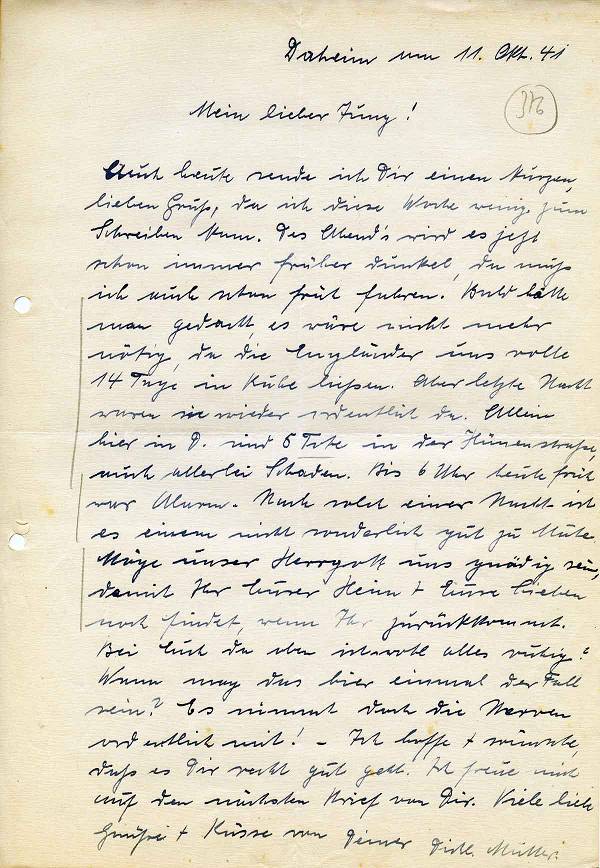 Daheim am 11. Okt. 41
376
Mein lieber Jung!
Auch heute sende ich Dir einen kurzen,
lieben Gruß, da ich diese Woche wenig zum
Schreiben kam. Des Abend's wird es jetzt
schon immer früher dunkel, da muß
ich auch schon früh fahren. Bald hätte
man gedacht, es wäre nicht mehr
nötig, da die Engländer uns volle
14 Tage in Ruhe ließen. Aber letzte Nacht
waren sie wieder ordentlich da. Allein
hier in D. sind 5 Tote in der Hünenstraße,
auch allerlei Schaden. Bis 6 Uhr heute früh
war Alarm. Nach solch einer Nacht ist
es einem nicht sonderlich gut zu Mute.
Möge unser Herrgott uns gnädig sein,
damit Ihr Eurer Heim + Eure Lieben
noch findet, wenn Ihr zurückkommt.
Bei Euch da oben ist wohl alles ruhig?
Wann mag das hier einmal der Fall
sein? Es nimmt doch die Nerven
ordentlich mit! – Ich hoffe + wünsche,
daß es Dir recht gut geht. Ich freue mich
auf den nächsten Brief von Dir. Viele liebe
Grüße + Küsse von Deiner Mutter.